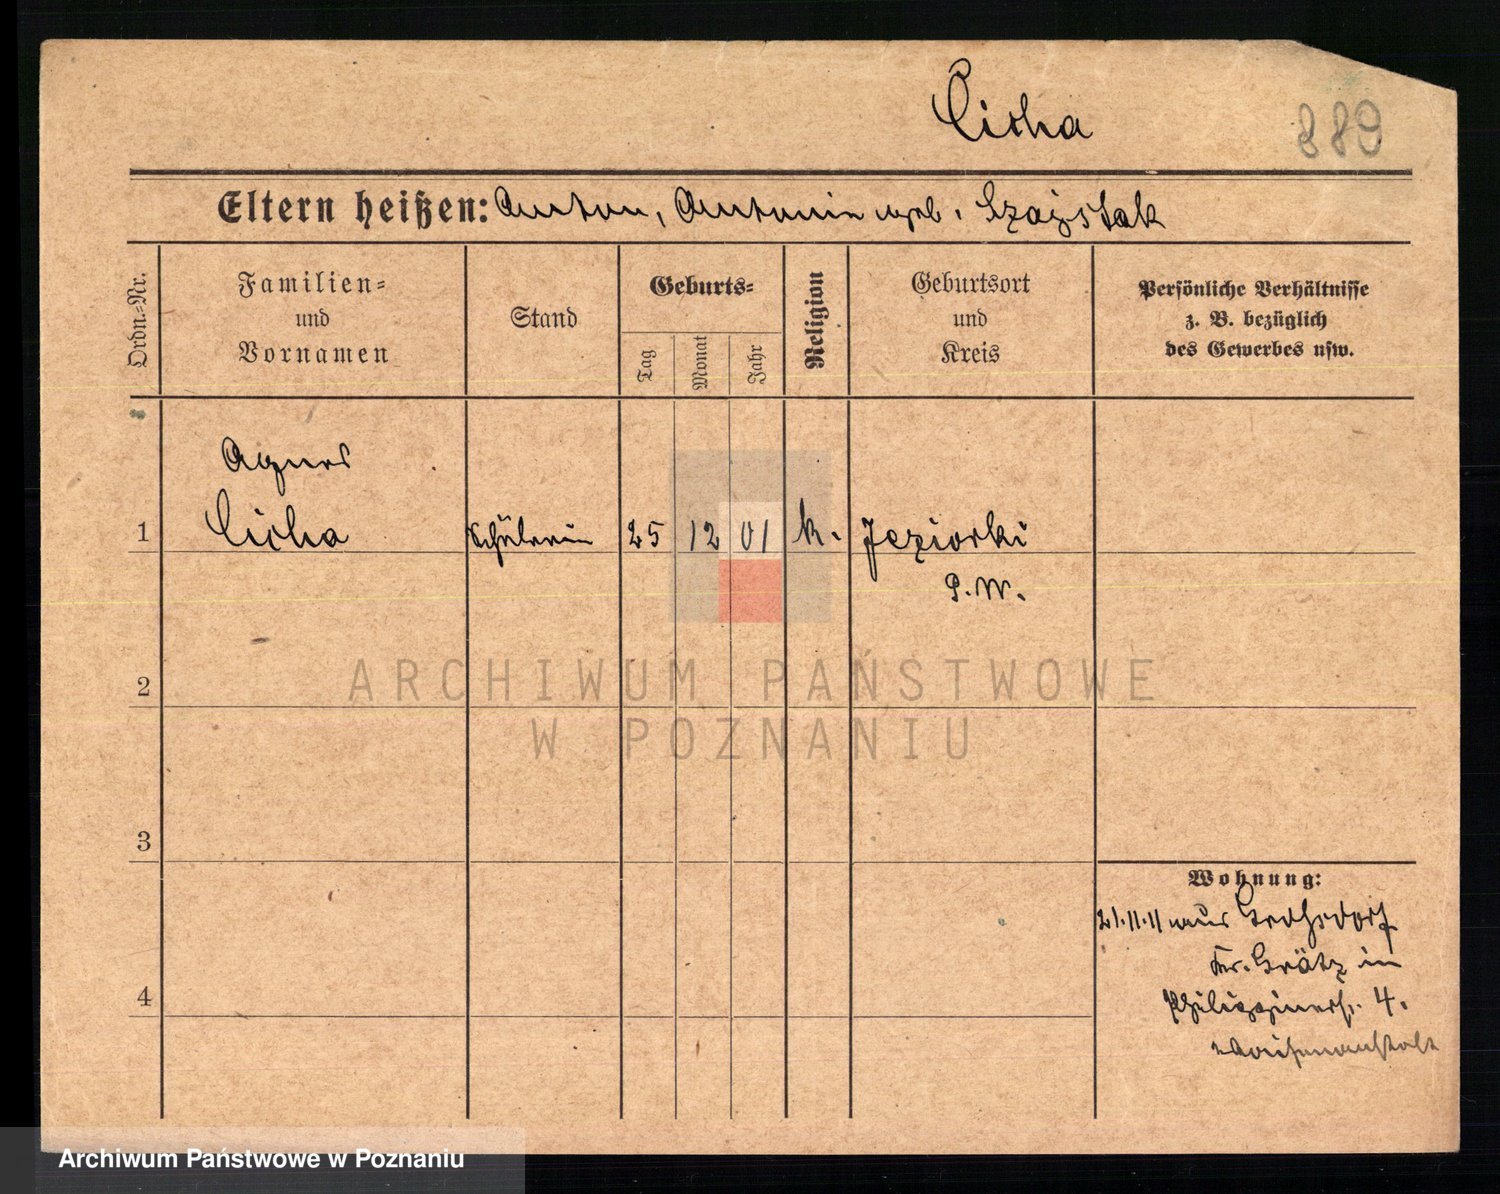 Cicha
889
Eltern heißen: Anton, Antonie geb. Szajstak
Ordn.-Nr.
Familien-
und
Vornamen
Stand
Geburts-
Tag
Monat
Jahr
Religion
Geburtsort
und
Kreis
Persönliche Verhältnisse
z. B. bezüglich
des Gewerbes usw.
Agnes
1 Cicha Schülerin 25 12 01 k. Jeziorki
P. W.
2
3
4
Wohnung:
21.11.11 aus
Kr. Grätz in
Philippinerst. 4.
Waisenanstalt
ARCHIWUM PAŃSTWOWE
W POZNANIU
Archiwum Państwowe w Poznaniu